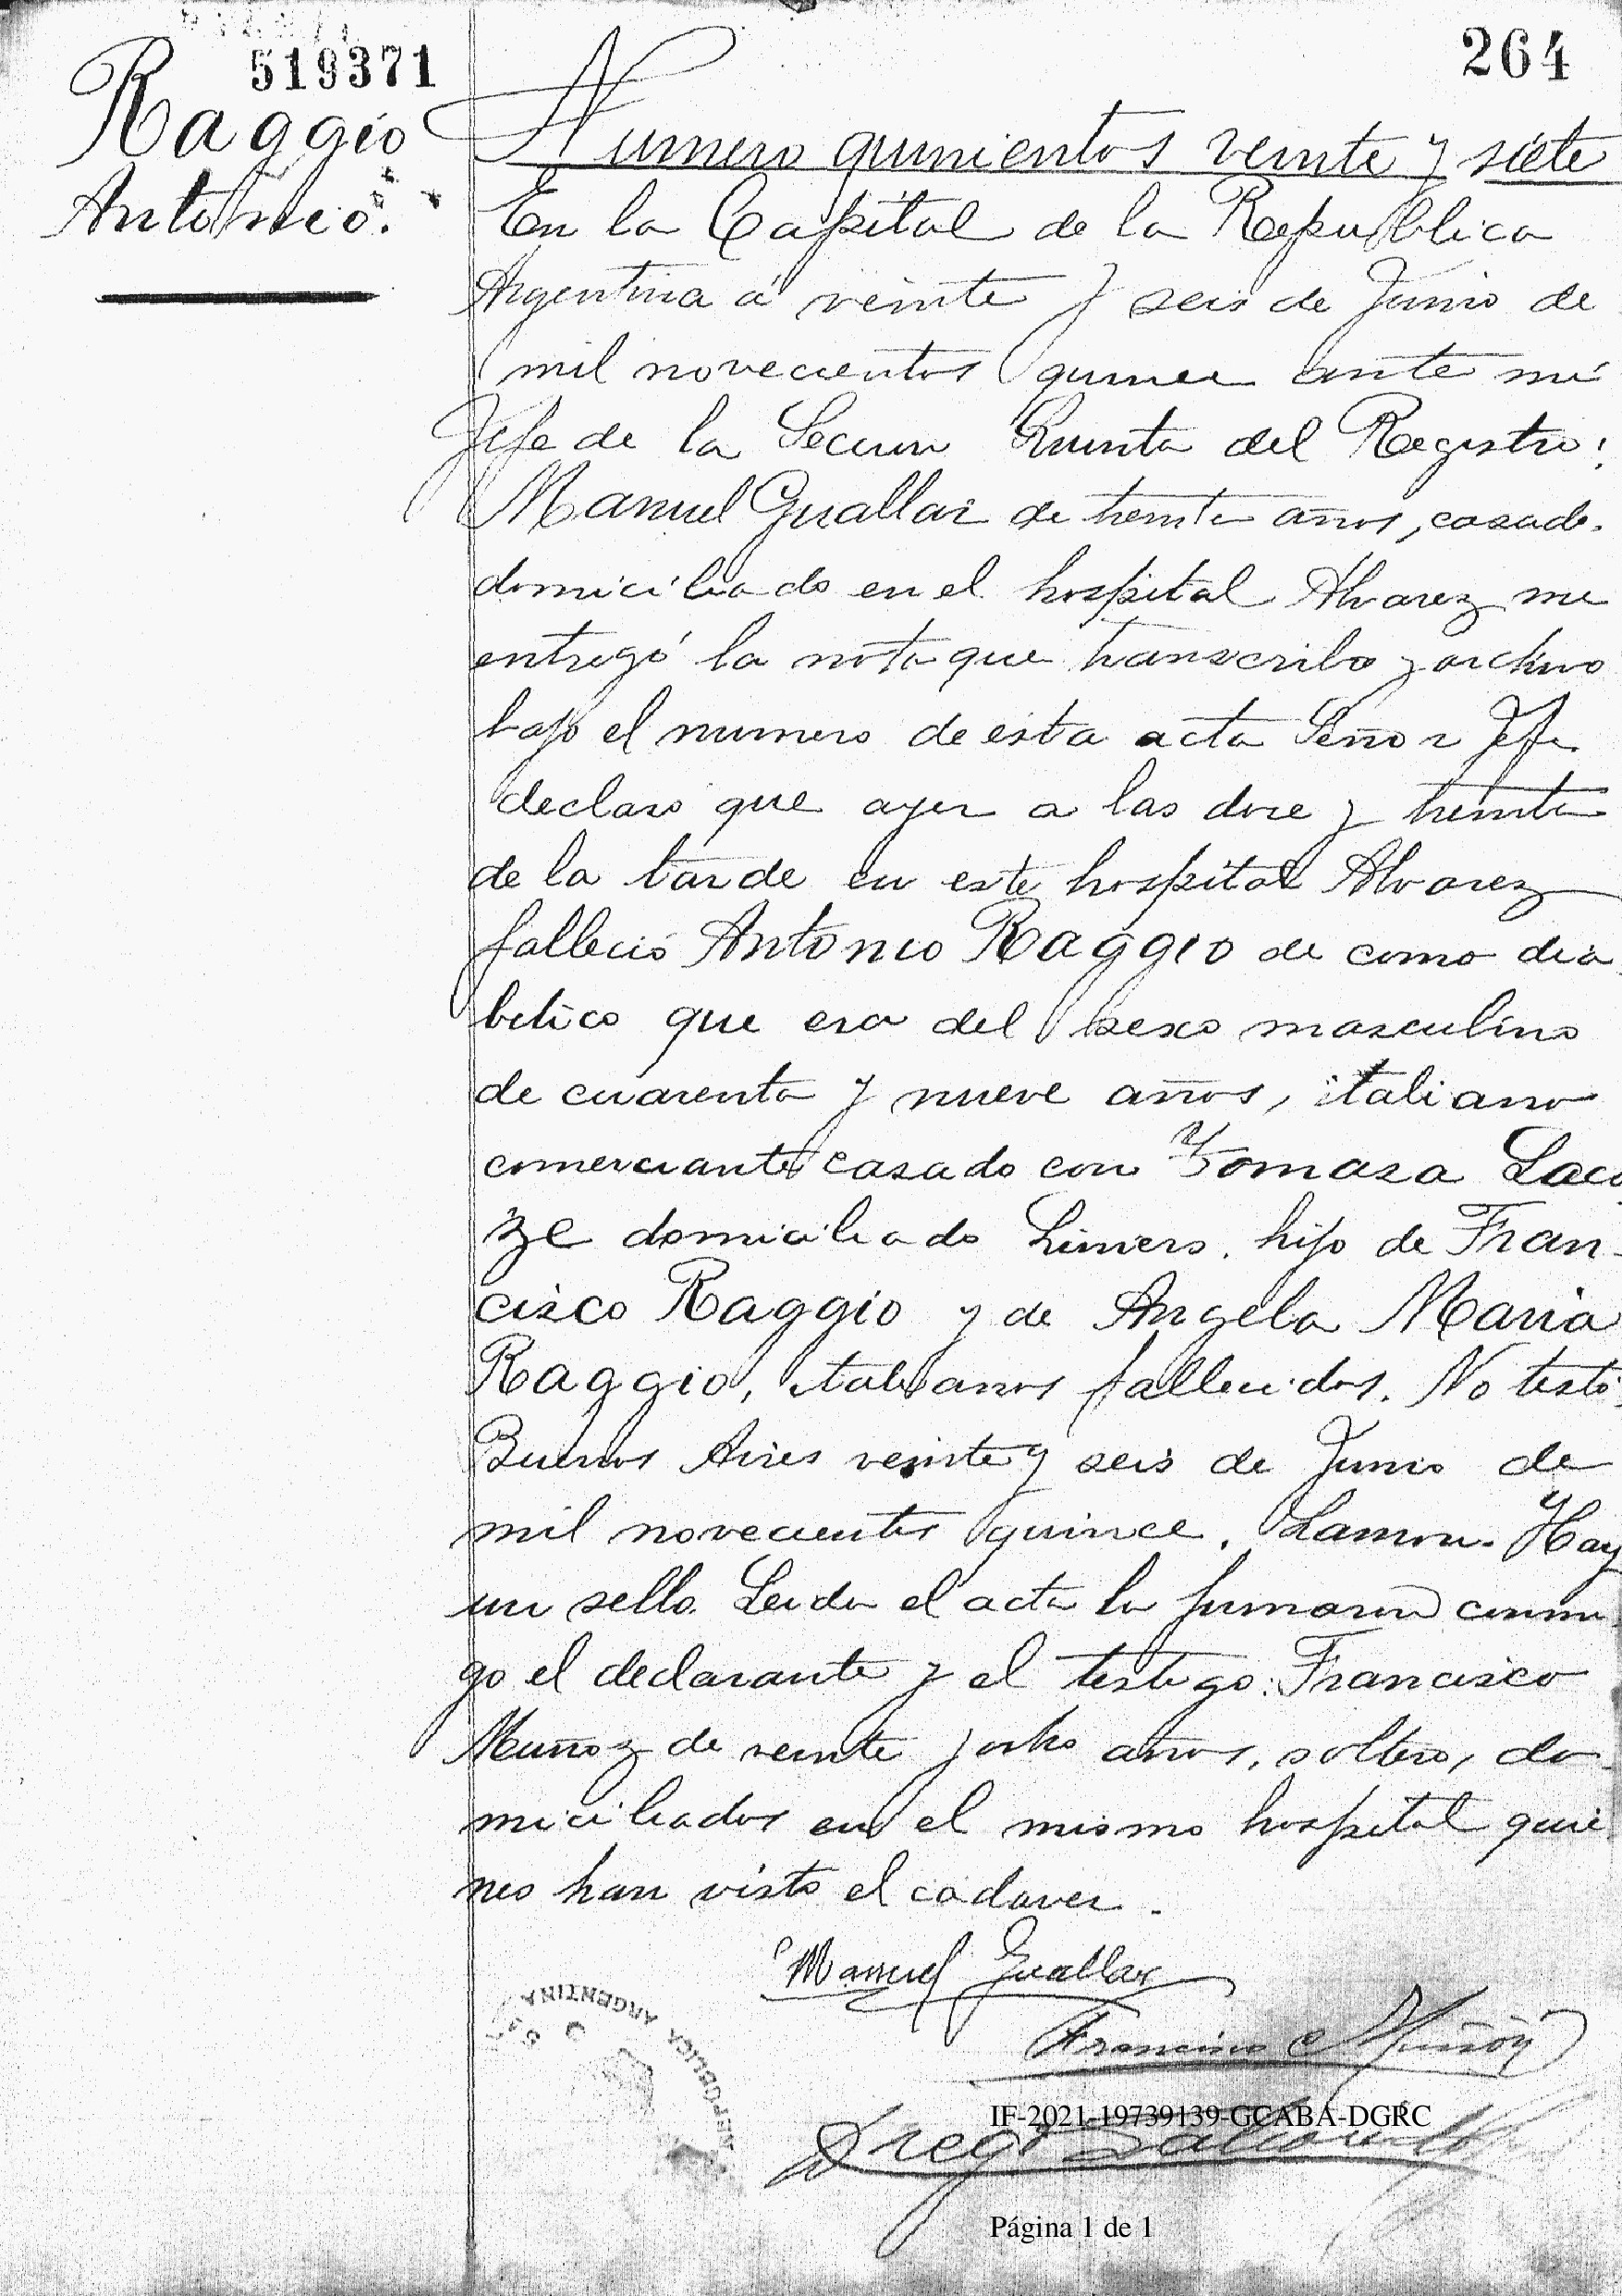 519371
264
Raggio
Antonio.
Numero quinientos veinte y siete
En la Capital de la Republica
Argentina á veinte y seis de Junio de
mil novecientos quince ante mi
Jefe de la Seccion Quinta del Registro:
Manuel Guallar de treinta años, casado.
domiciliado en el hospital Alvarez me
entregó la nota que transcribo y archivo
bajo el numero de esta acta Señor Jefe
declaro que ayer a las doce y treinta
de la tarde en este hospital Alvarez
falleció Antonio Raggio de coma dia
betico que era del sexo masculino
de cuarenta y nueve años, italiano
comerciante casado con Tomasa Laco
ze domiciliado Liniers. hijo de Fran-
cisco Raggio y de Angela Maria
Raggio, italianos fallecidos. No testó.
Buenos Aires veinte y seis de Junio de
mil novecientos quince. Hay
un sello. Leida el acta la firmaron conmi
go el declarante y el testigo: Francisco
Muñoz de veinte y ocho años, soltero, do
miciliados en el mismo hospital quie
nes han visto el cadaver.
Manuel Guallar
Francisco Muñoz
IF-2021-19739139-GCABA-DGRC
REPUBLICA ARGENTINA
Página 1 de 1